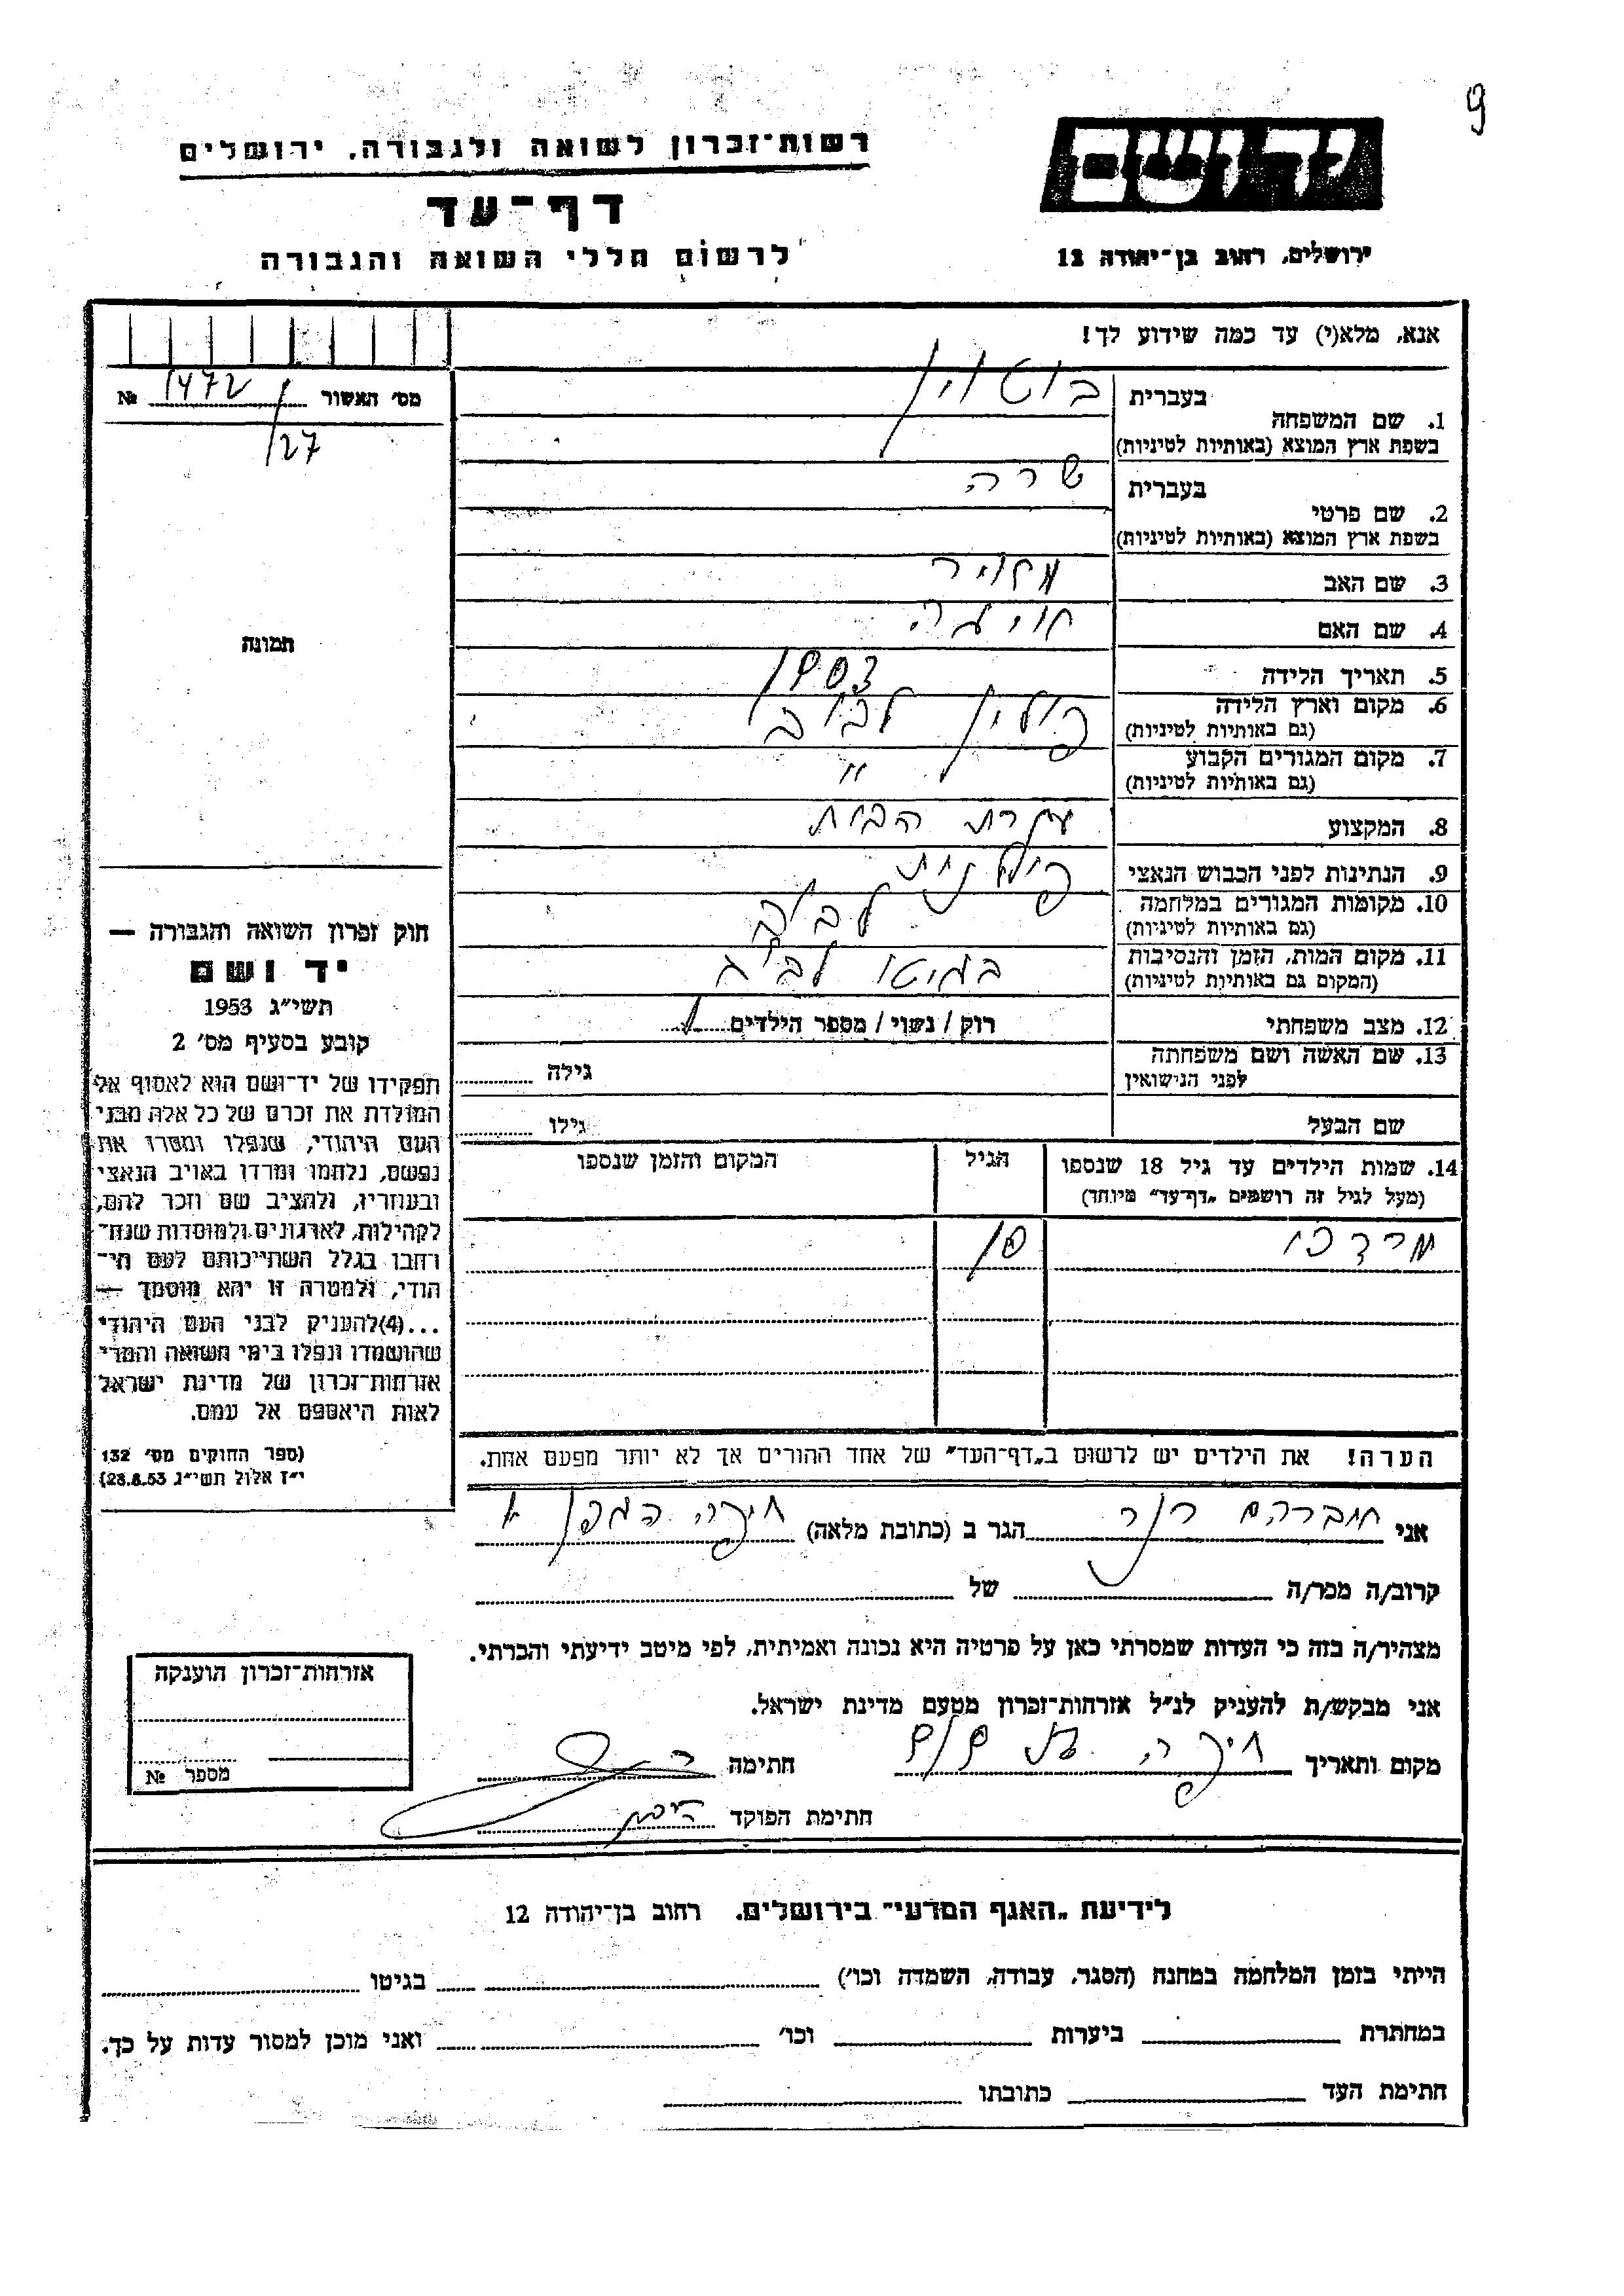 9
יד ושם
ירושלים, רחוב בן־יהודה 12
רשות־זכרון לשואה ולגבורה, ירושלים
דף־עד
לרשום חללי השואה והגבורה
אנא, מלא(י) עד כמה שידוע לך!
מס' האשור 1472 №
27
תמונה
1. שם המשפחה
בעברית
בשפת ארץ המוצא (באותיות לטיניות)
2. שם פרטי
בעברית שרה
בשפת ארץ המוצא (באותיות לטיניות)
3. שם האב מאיר
4. שם האם
5. תאריך הלידה 1903
6. מקום וארץ הלידה פולין לבוב
(גם באותיות לטיניות)
7. מקום המגורים הקבוע "
(גם באותיות לטיניות)
8. המקצוע עקרת הבית
9. הנתינות לפני הכבוש הנאצי פולנית
10. מקומות המגורים במלחמה לבוב
(גם באותיות לטיניות)
11. מקום המות, הזמן והנסיבות בגיטו לבוב
(המקום גם באותיות לטיניות)
12. מצב משפחתי רוק / נשוי / מספר הילדים 1
13. שם האשה ושם משפחתה גילה
לפני הנישואין
שם הבעל גילו
14. שמות הילדים עד גיל 18 שנספו הגיל המקום והזמן שנספו
(מעל לגיל זה רושמים "דף־עד" מיוחד)
מרדכי 10
הערה! את הילדים יש לרשום ב"דף־העד" של אחד ההורים אך לא יותר מפעם אחת.
חוק זכרון השואה והגבורה —
יד ושם
תשי"ג 1953
קובע בסעיף מס' 2
תפקידו של יד־ושם הוא לאסוף אל
המולדת את זכרם של כל אלה מבני
העם היהודי, שנפלו ומסרו את
נפשם, נלחמו ומרדו באויב הנאצי
ובעוזריו, ולהציב שם וזכר להם,
לקהילות, לארגונים ולמוסדות שנח־
רחבו בגלל השתייכותם לעם הי־
הודי, ולמטרה זו יהא מוסמך —
...(4)להעניק לבני העם היהודי
שהושמדו ונפלו בימי השואה והמרי
אזרחות־זכרון של מדינת ישראל
לאות היאספם אל עמם.
(ספר החוקים מס' 132
י"ז אלול תשי"ג 28.8.53)
אני הגר ב (כתובת מלאה) חיפה הגפן 1
קרוב/ה מכר/ה של
מצהיר/ה בזה כי העדות שמסרתי כאן על פרטיה היא נכונה ואמיתית, לפי מיטב ידיעתי והכרתי.
אני מבקש/ת להעניק לנ"ל אזרחות־זכרון מטעם מדינת ישראל.
מקום ותאריך חיפה חתימה
חתימת הפוקד
אזרחות־זכרון הוענקה
מספר №
לידיעת "האגף המדעי" בירושלים. רחוב בן־יהודה 12
הייתי בזמן המלחמה במחנה (הסגר, עבודה, השמדה וכו') בגיטו
במחתרת ביערות וכו' ואני מוכן למסור עדות על כך.
חתימת העד כתובתו